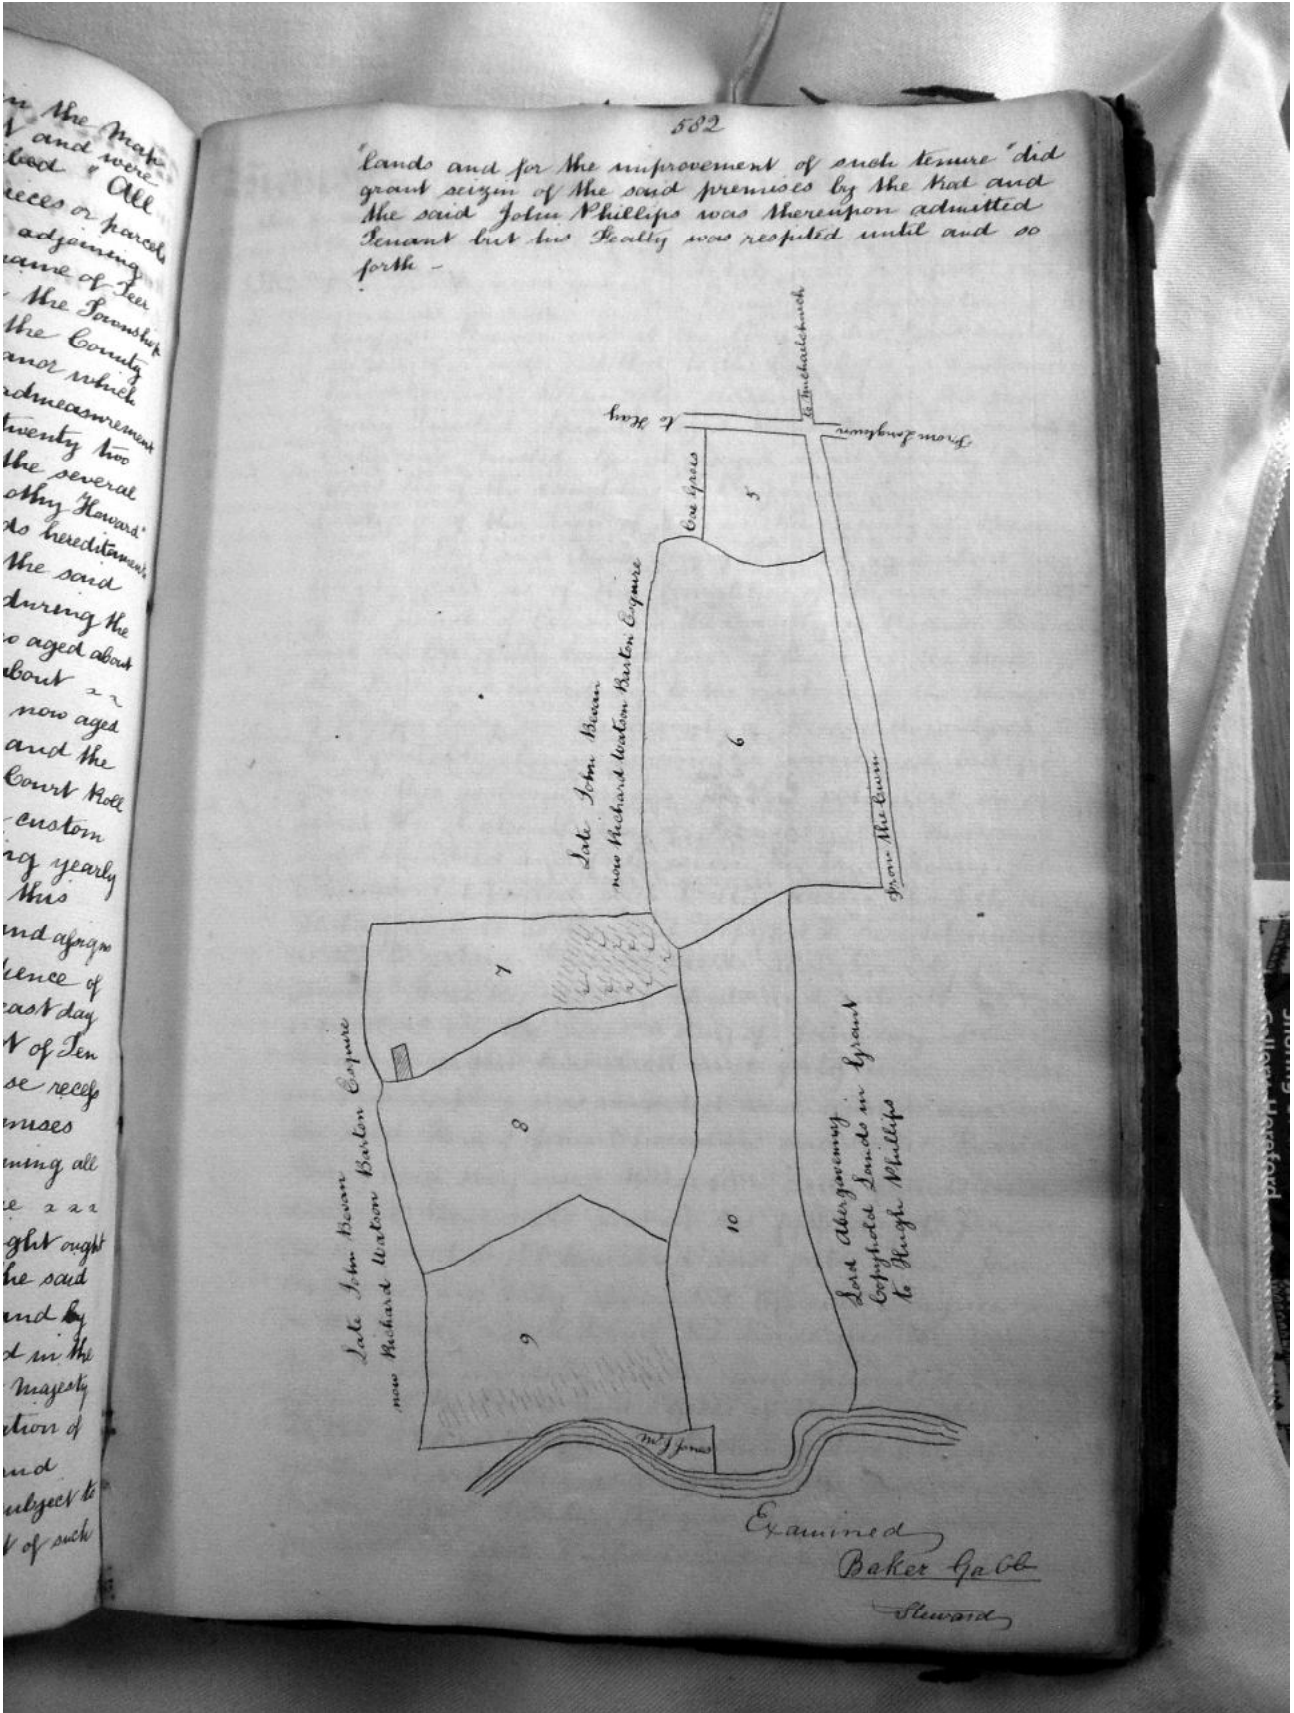 in the Map
and were
"All
pieces or parcels
adjoining
name of Teer
the Township
the County
and which
admeasurement
twenty two
the several
othy Howard"
ds hereditaments
the said
during the
o aged about
about
now aged
and the
Court Roll
custom
ng yearly
this
and assigns
east day
of Ten
se recess
emises
ning all
ght ought
he said
and by
d in the
Majesty
ation of
and
subject to
of such
582
"lands and for the improvement of such tenure" did
grant seizin of the said premises by the Rod and
the said John Phillips was thereupon admitted
Tenant but his Fealty was respited until and so
forth -
to Michaelchurch
to Hay
From Longtown
Cae Groes
5
Late John Bevan
now Richard Watson Barton Esquire
6
From the Cwm
7
Late John Bevan
now Richard Watson Barton Esquire
8
9
10
Lord Abergavenny
Copyhold Lands in Grant
to Hugh Phillips
Examined
Baker Gabb
Steward
Hereford